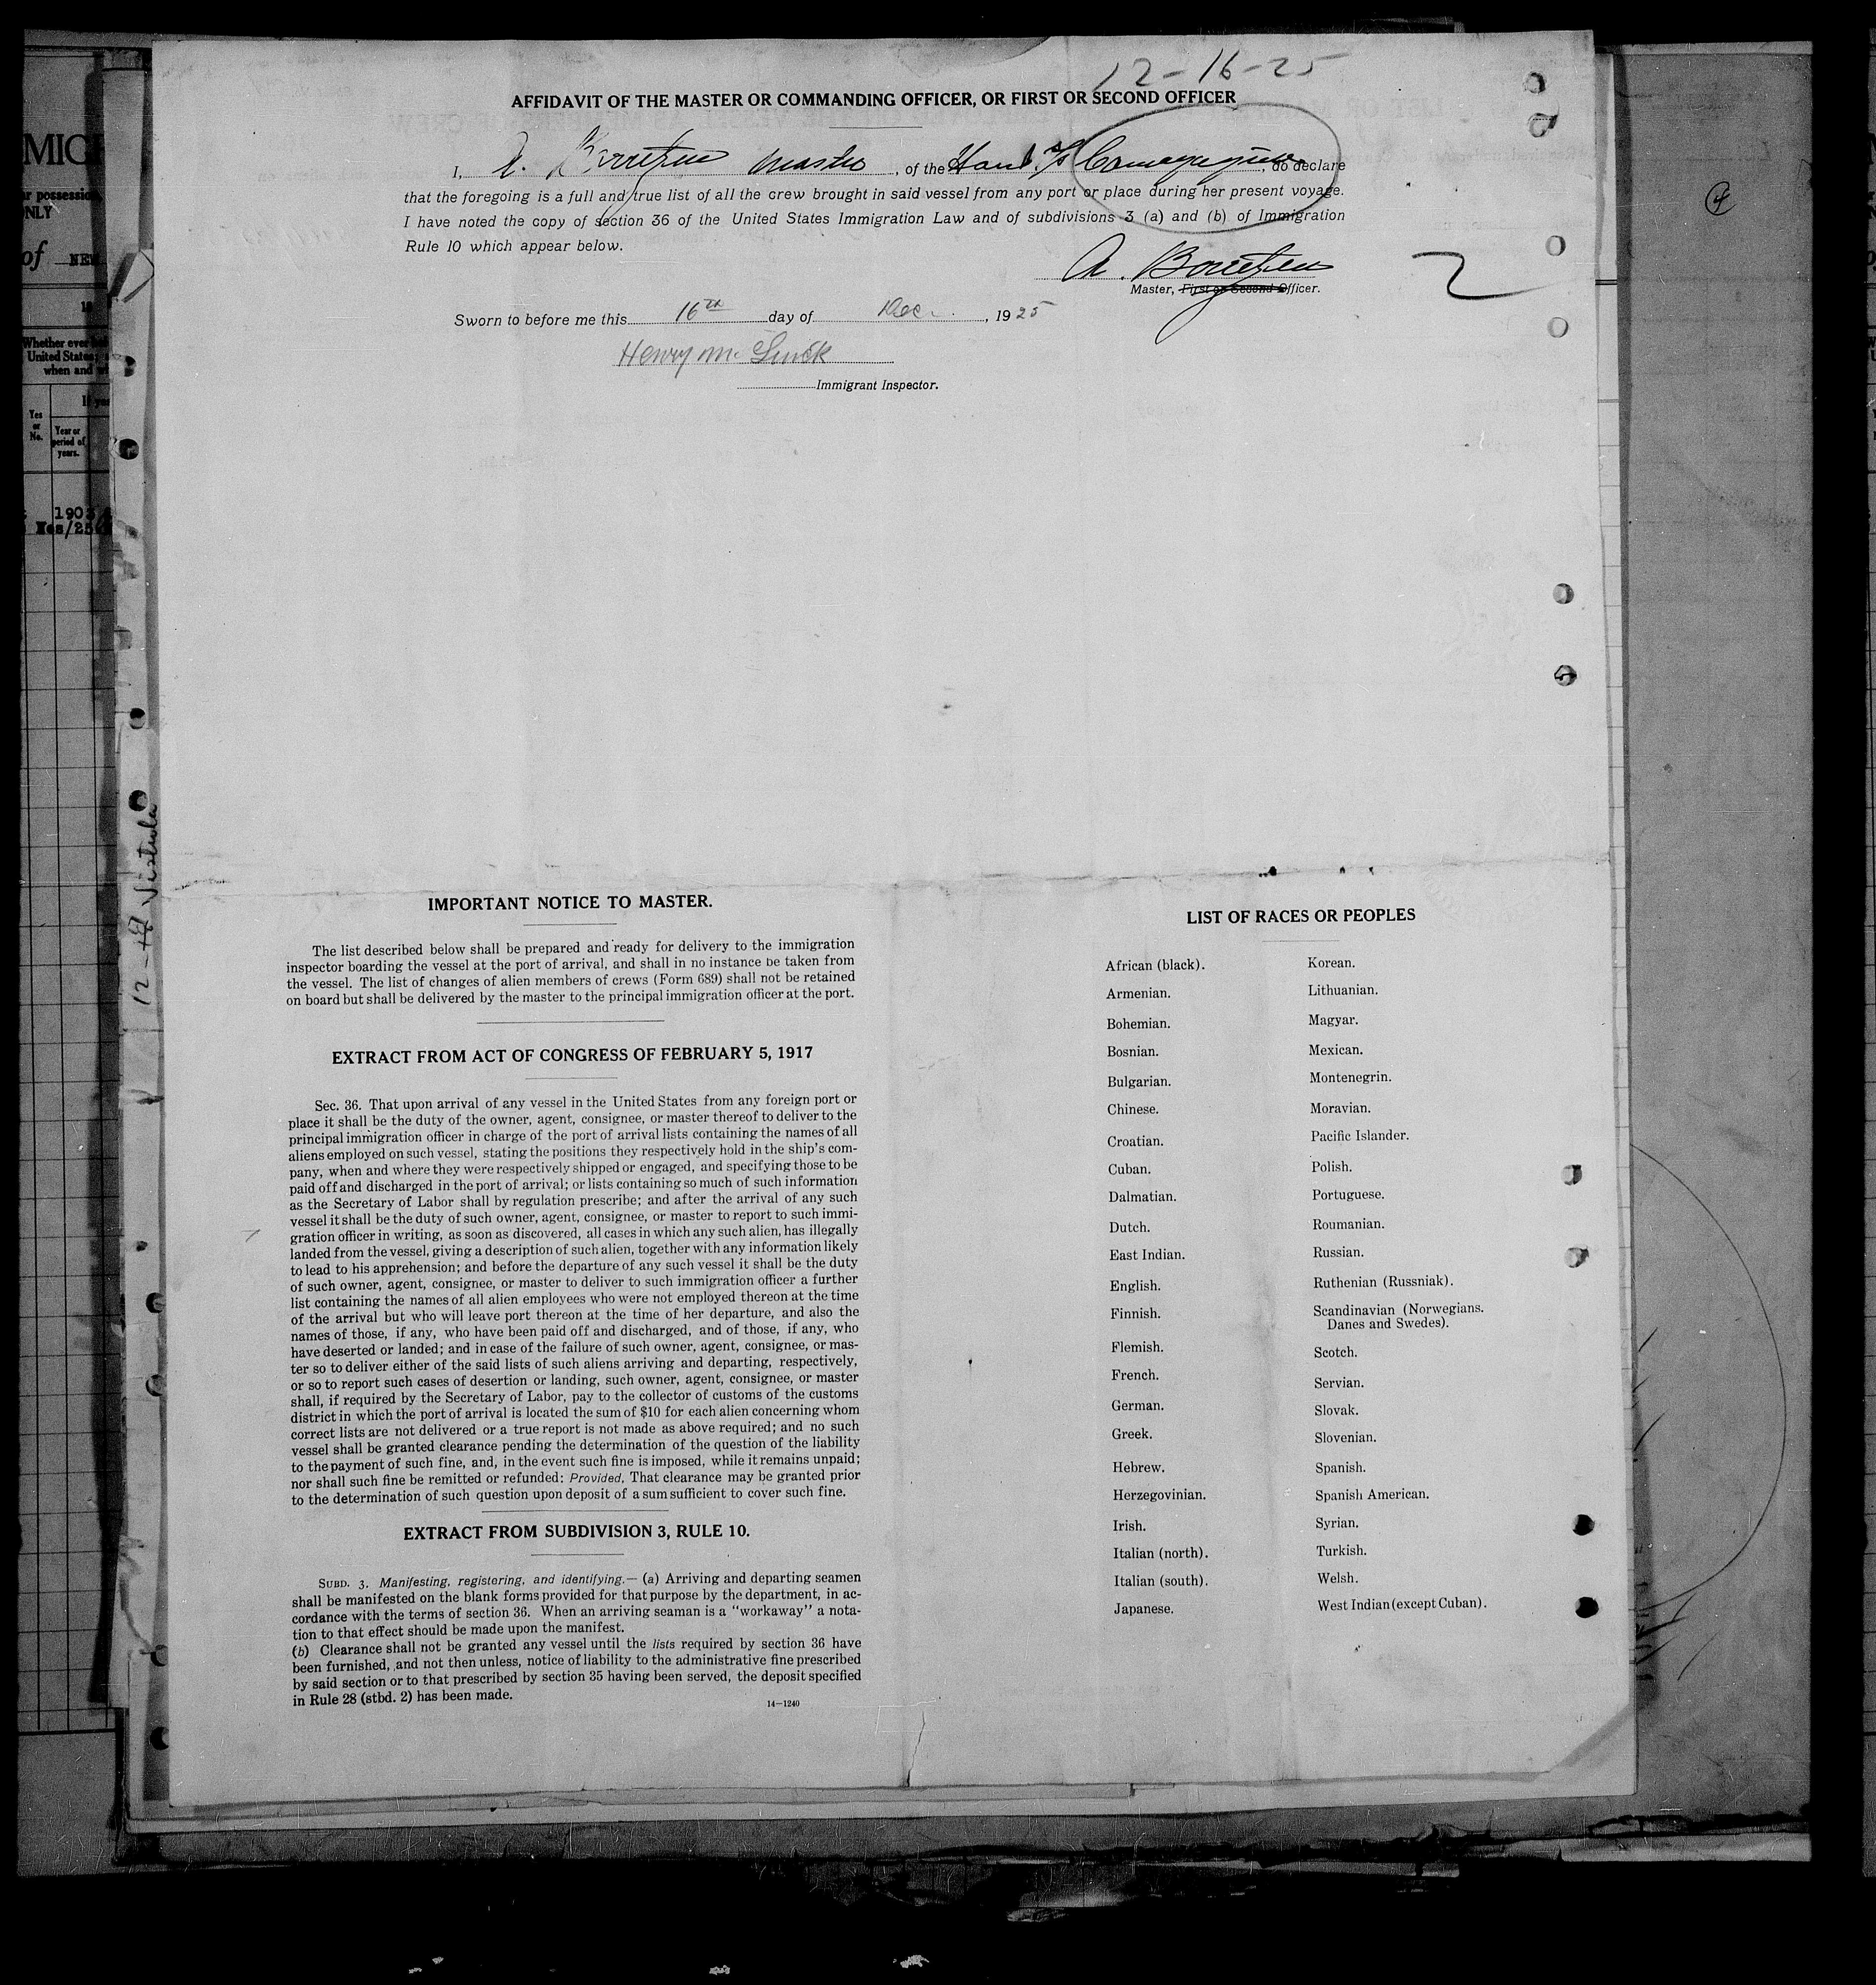 12-16-25
AFFIDAVIT OF THE MASTER OR COMMANDING OFFICER, OR FIRST OR SECOND OFFICER
I, A. master, of the Comayagua, do declare
that the foregoing is a full and true list of all the crew brought in said vessel from any port or place during her present voyage.
I have noted the copy of section 36 of the United States Immigration Law and of subdivisions 3 (a) and (b) of Immigration
Rule 10 which appear below.
A.
Master, First or Second Officer.
2
Sworn to before me this 16th day of Dec. , 1925
Henry M.
Immigrant Inspector.
IMPORTANT NOTICE TO MASTER.
The list described below shall be prepared and ready for delivery to the immigration
inspector boarding the vessel at the port of arrival, and shall in no instance be taken from
the vessel. The list of changes of alien members of crews (Form 689) shall not be retained
on board but shall be delivered by the master to the principal immigration officer at the port.
EXTRACT FROM ACT OF CONGRESS OF FEBRUARY 5, 1917
Sec. 36. That upon arrival of any vessel in the United States from any foreign port or
place it shall be the duty of the owner, agent, consignee, or master thereof to deliver to the
principal immigration officer in charge of the port of arrival lists containing the names of all
aliens employed on such vessel, stating the positions they respectively hold in the ship's com-
pany, when and where they were respectively shipped or engaged, and specifying those to be
paid off and discharged in the port of arrival; or lists containing so much of such information
as the Secretary of Labor shall by regulation prescribe; and after the arrival of any such
vessel it shall be the duty of such owner, agent, consignee, or master to report to such immi-
gration officer in writing, as soon as discovered, all cases in which any such alien, has illegally
landed from the vessel, giving a description of such alien, together with any information likely
to lead to his apprehension; and before the departure of any such vessel it shall be the duty
of such owner, agent, consignee, or master to deliver to such immigration officer a further
list containing the names of all alien employees who were not employed thereon at the time
of the arrival but who will leave port thereon at the time of her departure, and also the
names of those, if any, who have been paid off and discharged, and of those, if any, who
have deserted or landed; and in case of the failure of such owner, agent, consignee, or mas-
ter so to deliver either of the said lists of such aliens arriving and departing, respectively,
or so to report such cases of desertion or landing, such owner, agent, consignee, or master
shall, if required by the Secretary of Labor, pay to the collector of customs of the customs
district in which the port of arrival is located the sum of $10 for each alien concerning whom
correct lists are not delivered or a true report is not made as above required; and no such
vessel shall be granted clearance pending the determination of the question of the liability
to the payment of such fine, and, in the event such fine is imposed, while it remains unpaid;
nor shall such fine be remitted or refunded: Provided, That clearance may be granted prior
to the determination of such question upon deposit of a sum sufficient to cover such fine.
EXTRACT FROM SUBDIVISION 3, RULE 10.
SUBD. 3. Manifesting, registering, and identifying.— (a) Arriving and departing seamen
shall be manifested on the blank forms provided for that purpose by the department, in ac-
cordance with the terms of section 36. When an arriving seaman is a "workaway" a nota-
tion to that effect should be made upon the manifest.
(b) Clearance shall not be granted any vessel until the lists required by section 36 have
been furnished, and not then unless, notice of liability to the administrative fine prescribed
by said section or to that prescribed by section 35 having been served, the deposit specified
in Rule 28 (stbd. 2) has been made.
14—1240
LIST OF RACES OR PEOPLES
African (black).
Armenian.
Bohemian.
Bosnian.
Bulgarian.
Chinese.
Croatian.
Cuban.
Dalmatian.
Dutch.
East Indian.
English.
Finnish.
Flemish.
French.
German.
Greek.
Hebrew.
Herzegovinian.
Irish.
Italian (north).
Italian (south).
Japanese.
Korean.
Lithuanian.
Magyar.
Mexican.
Montenegrin.
Moravian.
Pacific Islander.
Polish.
Portuguese.
Roumanian.
Russian.
Ruthenian (Russniak).
Scandinavian (Norwegians.
Danes and Swedes).
Scotch.
Servian.
Slovak.
Slovenian.
Spanish.
Spanish American.
Syrian.
Turkish.
Welsh.
West Indian (except Cuban).
Vistula
MIG
ur possession
ONLY
of NEW
Whether ever
United States
when and
Yes
or
No.
Year or
period of
years.
1903
Yes/25